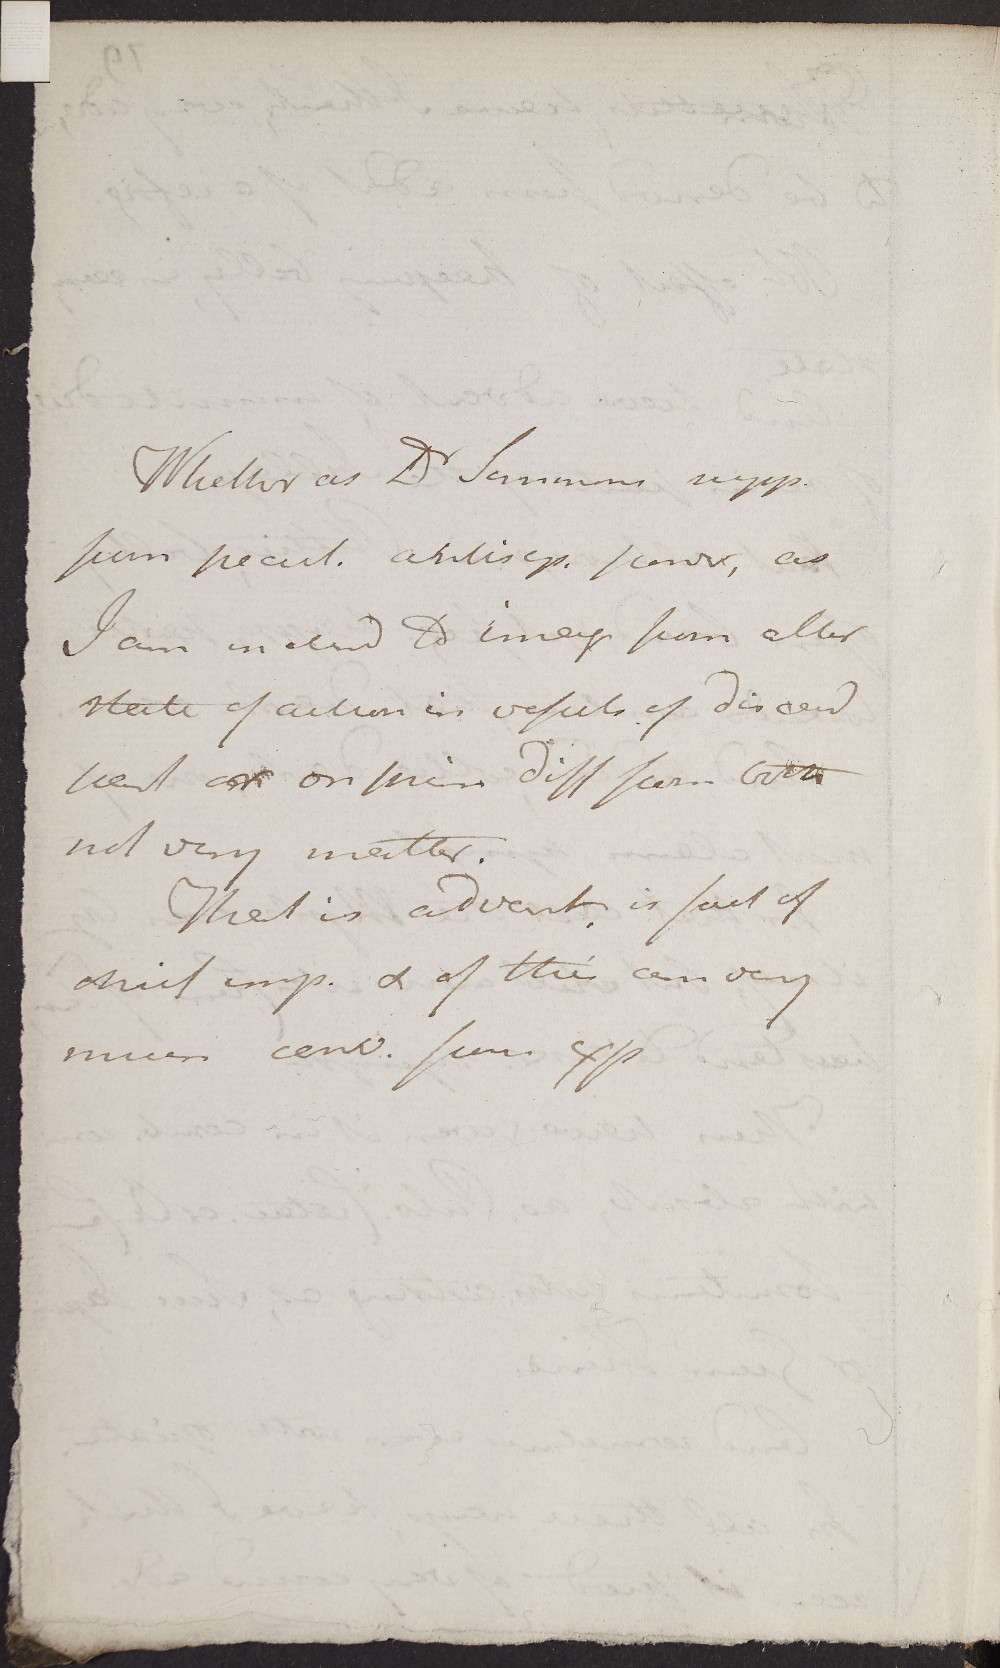 Whether as Dr Simmons supp.
from pecul. antisep. power, as
I am inclind to imag from alter
state of action in vessels of diseasd
part or on prin diff from both
not very matter.
That is advant. is fact of
chief imp. & of this am very
much conv. from exp